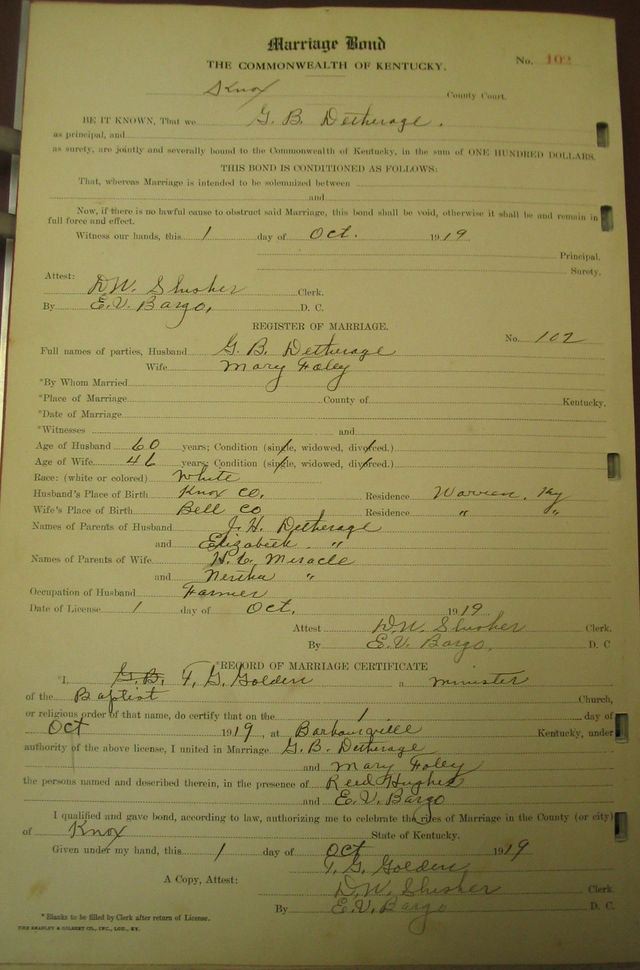 Marriage Bond
THE COMMONWEALTH OF KENTUCKY. No. 102
Knox County Court.
BE IT KNOWN, That we G. B. Detherage.
as principal, and
as surety, are jointly and severally bound to the Commonwealth of Kentucky, in the sum of ONE HUNDRED DOLLARS.
THIS BOND IS CONDITIONED AS FOLLOWS:
That, whereas Marriage is intended to be solemnized between
and
Now, if there is no lawful cause to obstruct said Marriage, this bond shall be void, otherwise it shall be and remain in
full force and effect.
Witness our hands, this 1 day of Oct. 1919
Principal.
Surety.
Attest:
D.W. Slusher Clerk.
By E.V. Bargo, D. C.
REGISTER OF MARRIAGE.
No. 102
Full names of parties, Husband G. B. Detherage
Wife Mary Foley
*By Whom Married
*Place of Marriage County of Kentucky.
*Date of Marriage
*Witnesses and
Age of Husband 60 years; Condition (single, widowed, divorced.)
Age of Wife 46 years; Condition (single, widowed, divorced.)
Race: (white or colored) White
Husband's Place of Birth Knox Co, Residence Warren, Ky
Wife's Place of Birth Bell Co Residence " "
Names of Parents of Husband J. H. Detherage
and Elizabeth "
Names of Parents of Wife H. C. Miracle
and "
Occupation of Husband Farmer
Date of License 1 day of Oct. 1919
Attest D.W. Slusher Clerk.
By E.V. Bargo. D. C
*RECORD OF MARRIAGE CERTIFICATE
*I, G.B. T. G. Golden a minister
of the Baptist Church,
or religious order of that name, do certify that on the 1 day of
Oct 1919, at Barbourville Kentucky, under
authority of the above license, I united in Marriage G. B. Detherage
and Mary Foley
the persons named and described therein, in the presence of Reed Hughes
and E.V. Bargo
I qualified and gave bond, according to law, authorizing me to celebrate the rites of Marriage in the County (or city)
of Knox State of Kentucky.
Given under my hand, this 1 day of Oct 1919
T. G. Golden
A Copy, Attest: D.W. Slusher Clerk
By E.V. Bargo D. C.
*Blanks to be filled by Clerk after return of License.
THE BRADLEY & GILBERT CO., INC., LOU., KY.